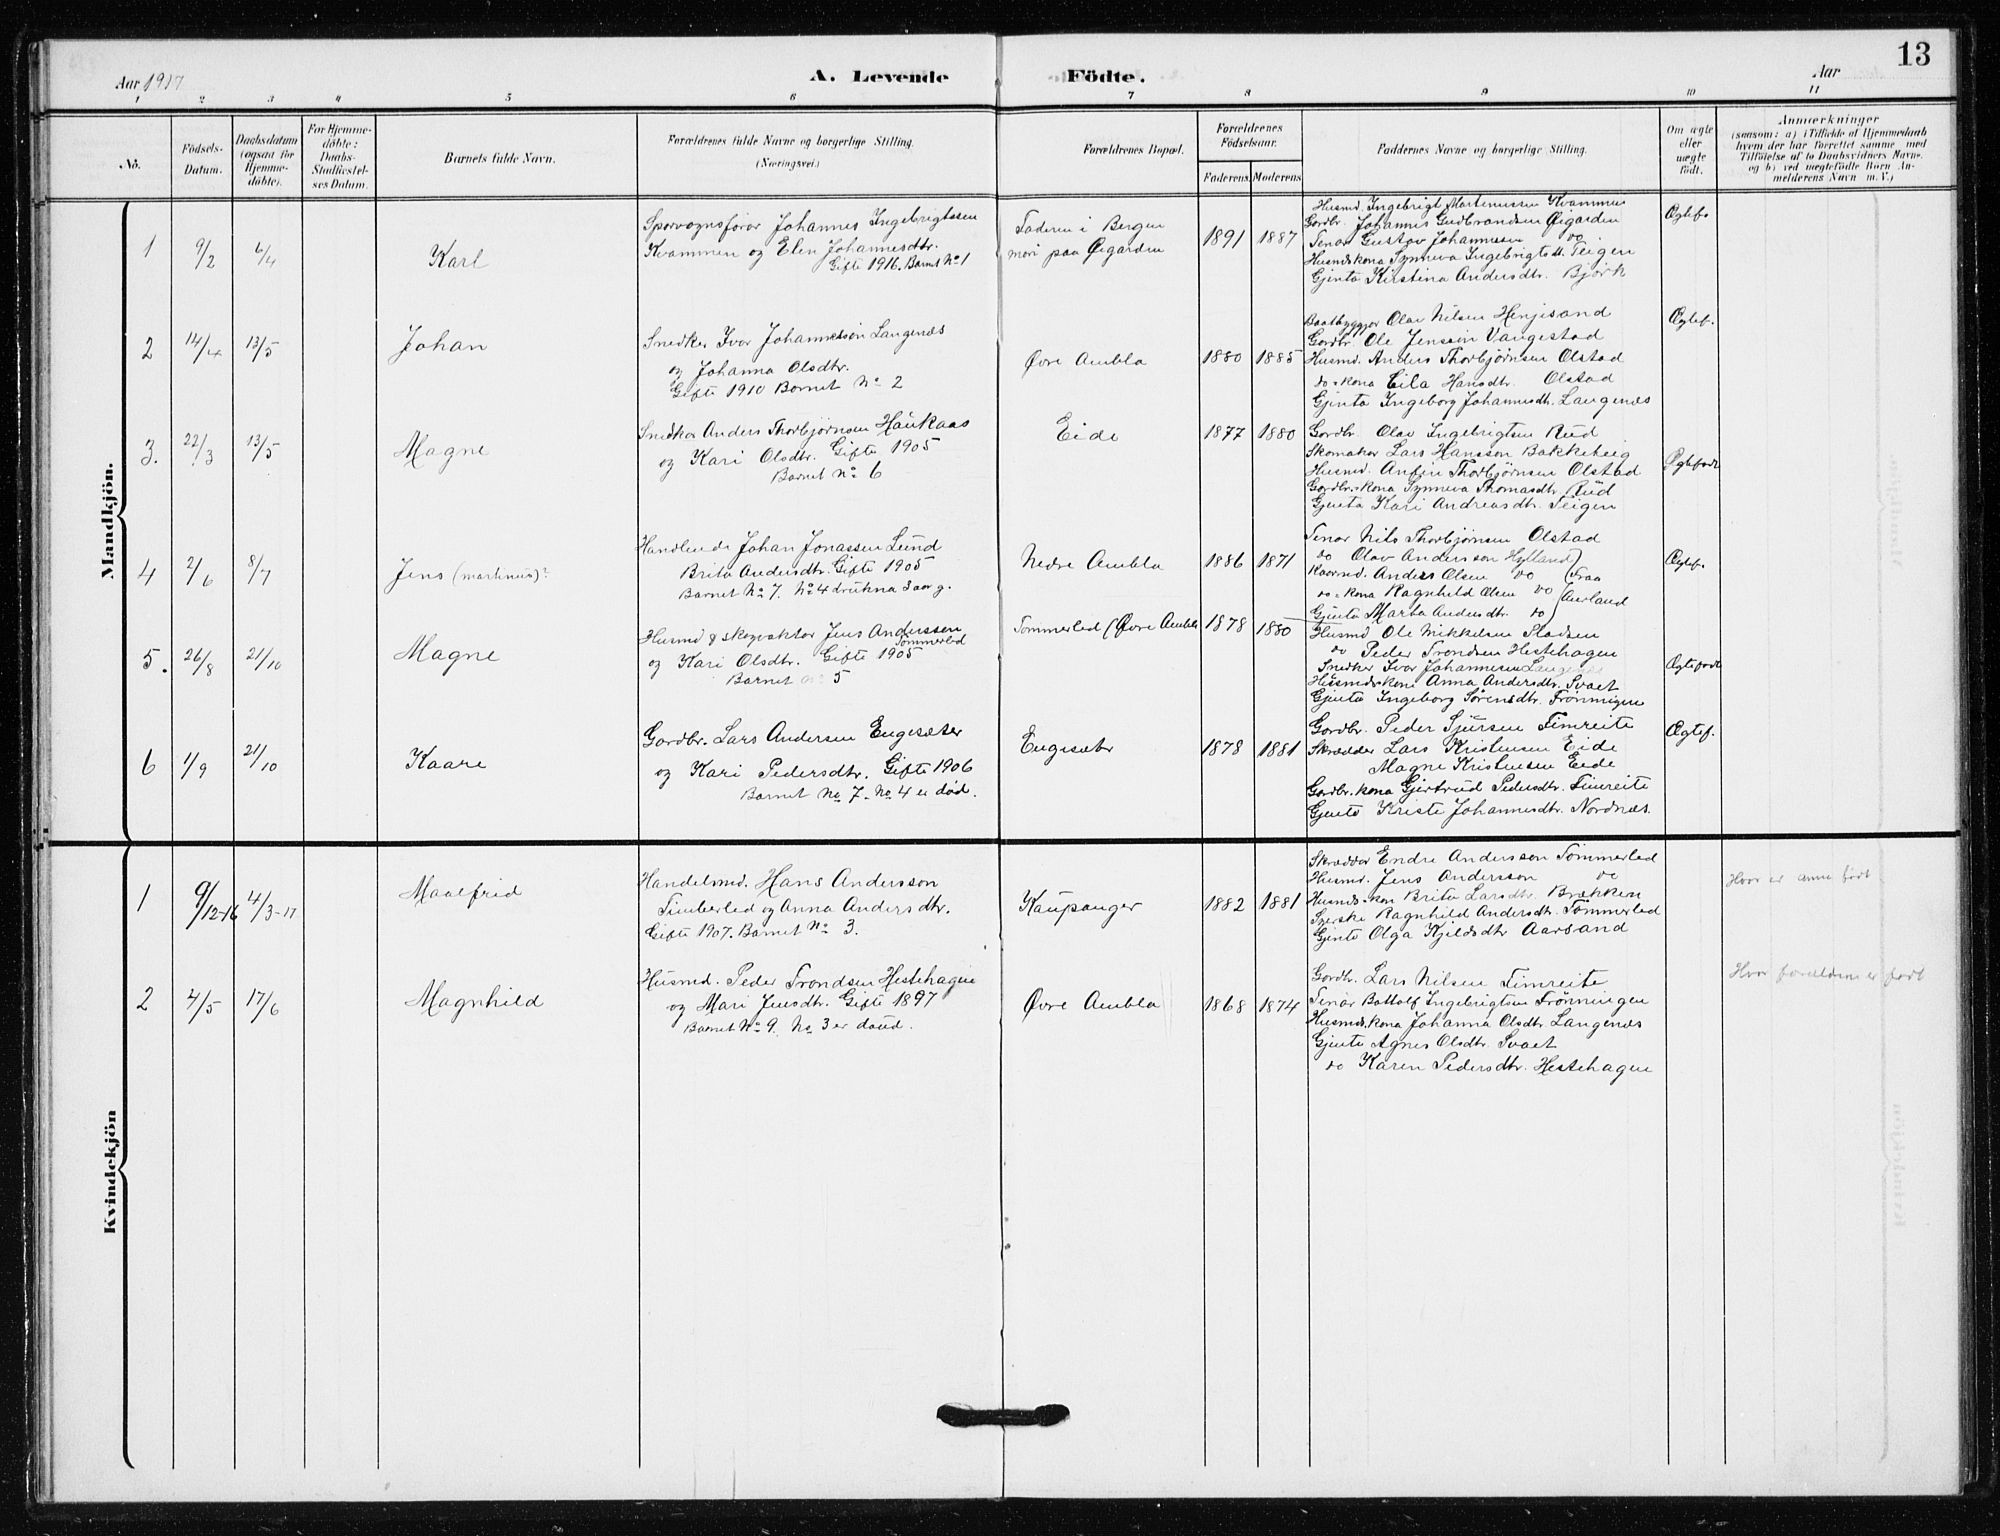 13
Aar 1917
A. Levende Födte.
Aar
1 2 3 4 5 6 7 8 9 10 11
No.
Födsels-
Datum.
Daabsdatum
(ogsaa for
Hjemme-
döbte).
For Hjemme-
döbte:
Daabs-
Stadfæstel-
ses Datum.
Barnets fulde Navn.
Forældrenes fulde Navne og borgerlige Stilling.
(Næringsvei.)
Forældrenes Bopæl.
Forældrenes
Födselsaar.
Faderens. Moderens.
Faddernes Navne og borgerlige Stilling.
Om ægte
eller
uægte
födt.
Anmærkninger
(saasom: a) i Tilfælde af Hjemmedaab
hvem der har forrettet samme, med
Tilföielse af to Daabsvidners Navne,
og b) ved uægtefödte Börn An-
melderens Navn m. V.)
Mandkjön.
1 9/2 4/4 Karl
Sporvognsförar Johannes Ingebrigtssen
Kvammen og Elen Johannesdtr.
Gifte 1916. Barnet No 1
Faderen i Bergen
mori paa Øigarden
1891 1887
Husmd. Ingebrigt Martenussen Kvammen
Gardbr. Johannes Gudbrandsen Øigarden
Tenar Gustav Johannesen do
Husmdskona Synneva Ingebrigtsdt. Teigen
Gjenta Kirstina Andersdtr. Bjørk
Ægtef.
2 14/4 13/5 Johan
Snedker Ivar Johannessøn Langenæs
og Johanna Olsdtr.
Gifte 1910 Barnet No 2
Øvre Ambla
1880 1885
Baatbyggjar Olav Nilsen Henjesand
Gordbr. Ole Jenssen Vangestad
Husmd. Anders Thorbjørnsen Olstad
do-kona Eila Hansdtr. Olstad
Gjenta Ingeborg Johannesdtr. Langenæs
Ægtef.
3. 22/3 13/5 Magne
Snedkar Anders Thorbjørnsen Haukaas
og Kari Olsdtr. Gifte 1905
Barnet No 6
Eide
1877 1880
Gordbr. Olav Ingebrigtsen Rud
Skomakar Lars Hansson Bakketeig
Husmd. Anfin Thorbjørnsen Olstad
Gordbr.skona Synneva Thomasdtr. Rud
Gjenta Kari Andreasdtr. Teigen
Ægtefødt
4 2/6 8/7 Jens (martinus)?
Handlende Johan Jonassen Lund
Brita Andersdtr. Gifte 1905
Barnet No 7. No 4 drukna 3 aar g.
Nedre Ambla
1886 1871
Tenar Nils Thorbjørnsen Olstad
do Olav Andersson Hylland
Kaarmd. Anders Olsen do (Fraa
do-kona Ragnhild Olsen do Aurland
Gjenta Marta Andersdtr. do
Ægtef.
5. 26/8 21/10 Magne
Husmd & skogvaktar Jens Anderssen
Tømmerled
og Kari Olsdtr. Gifte 1905
Barnet no 5
Tommerled (Øvre Ambla
1878 1880
Husmd Ole Mikkelsen Stadsen
do Peder Trondsen Hestehagen
Snedker Ivar Johannesen Langenæs
Husmdskone Anna Andersdtr. Svaet
Gjenta Ingeborg Sørensdtr. Frønningen
Ægtefødt
6 1/9 21/10 Kaare
Gardbr. Lars Andersen Engesæter
og Kari Pedersdtr. Gifte 1906
Barnet No 7. No 4 er død.
Engesætr
1878 1881
Gordbr. Peder Sjursen Timreite
Skrædder Lars Kristensen Eide
Magne Kristensen Eide
Gordbr.kona Gjertrud Pedersdtr. Timreite
Gjente Kriste Johannesdtr. Nordnæs.
Ægtef.
Kvindekjön
1 9/12-16 4/3-17 Maalfrid
Handelsmd. Hans Andersson
Timberled og Anna Andersdtr.
Gifte 1907. Barnet No 3.
Kaupanger
1882 1881
Skræddar Endre Andersson Tømmerled
Husmd. Jens Andersson do
Husmds-kon Brita Larsdtr. Brækken
Syerske Ragnhild Andersdtr. Tømmerled
Gjente Olga Kjeldsdtr Aarsand
Hvor er anna født
2 4/5 17/6 Magnhild
Husmd. Peder Trondsen Hestehagen
og Mari Jensdtr. Gifte 1897
Barnet No 9. No 3 er daud.
Øvre Ambla
1868 1874
Gordbr. Lars Nilsen Timreite
Tenar Bottolf Ingebrigtsen Frønningen
Husmds.kona Johanna Olsdtr Langenæs
Gjente Agnes Olsdtr. Svaet
do Karen Pedersdtr. Hestehagen
Hvor forældrene er født